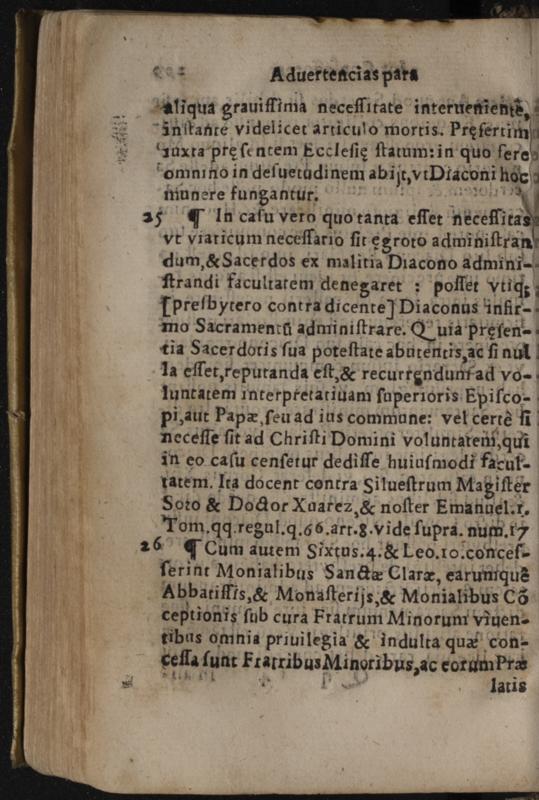 Aduertencias para
aliqua grauissima necessitate interuenientẽ,
instante videlicet articulo mortis. Pręsertim
iuxta pręsentem Ecclesię statum: in quo fere
omnino in desuetudinem abijt, vt Diaconi hoc
munere fungantur.
25 ¶ In casu vero quo tanta esset necessitas
vt viaticum necessario sit ęgroto administran
dum, & Sacerdos ex malitia Diacono admini-
strandi facultatem denegaret : posset vtiq;
[presbytero contradicente] Diaconus infir-
mo Sacramentũ administrare. Quia pręsen-
tia Sacerdotis sua potestate abutentis, ac si nul
la esset, reputanda est, & recurrendum ad vo-
luntatem interpretatiuam superioris Episco-
pi, aut Papæ, seu ad ius commune: vel certè si
necesse sit ad Christi Domini voluntatem, qui
in eo casu censetur dedisse huiusmodi facul-
tatem. Ita docent contra Siluestrum Magister
Soto & Doctor Xuarez, & noster Emanuel. 1.
Tom. qq. regul. q. 66. art. 8. vide supra. num. 17
26 ¶ Cum autem Sixtus. 4. & Leo. 10. conces-
serint Monialibus Sanctæ Claræ, earumquè
Abbatissis, & Monasterijs, & Monialibus Cõ
ceptionis sub cura Fratrum Minorum viuen-
tibus omnia priuilegia & indulta quæ con-
cessa sunt Fratribus Minoribus, ac eorum Præ
latis